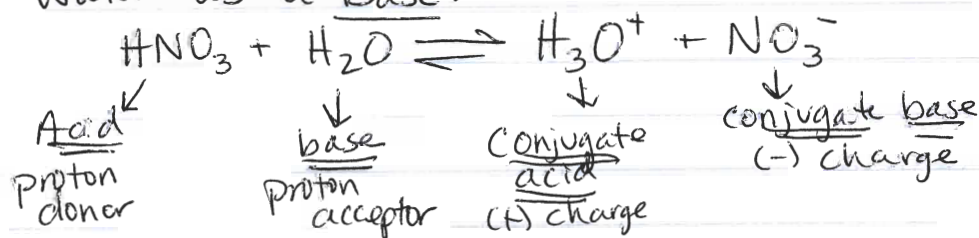 as a base
HNO₃ + H₂O ⇌ H₃O⁺ + NO₃⁻
Acid
proton
donor
base
proton
acceptor
Conjugate
acid
(+) charge
conjugate base
(-) charge